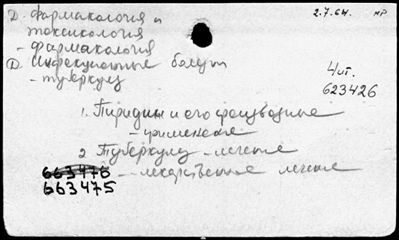 Д. фармакология и
токсикология
- фармакология
Д инфекционные болезни
- туберкулез
2.7.64. нр
Чит.
623426
1. Пиридин и его производные
- применение
2 Туберкулез - лечение
663476 - лекарственное лечение
663475